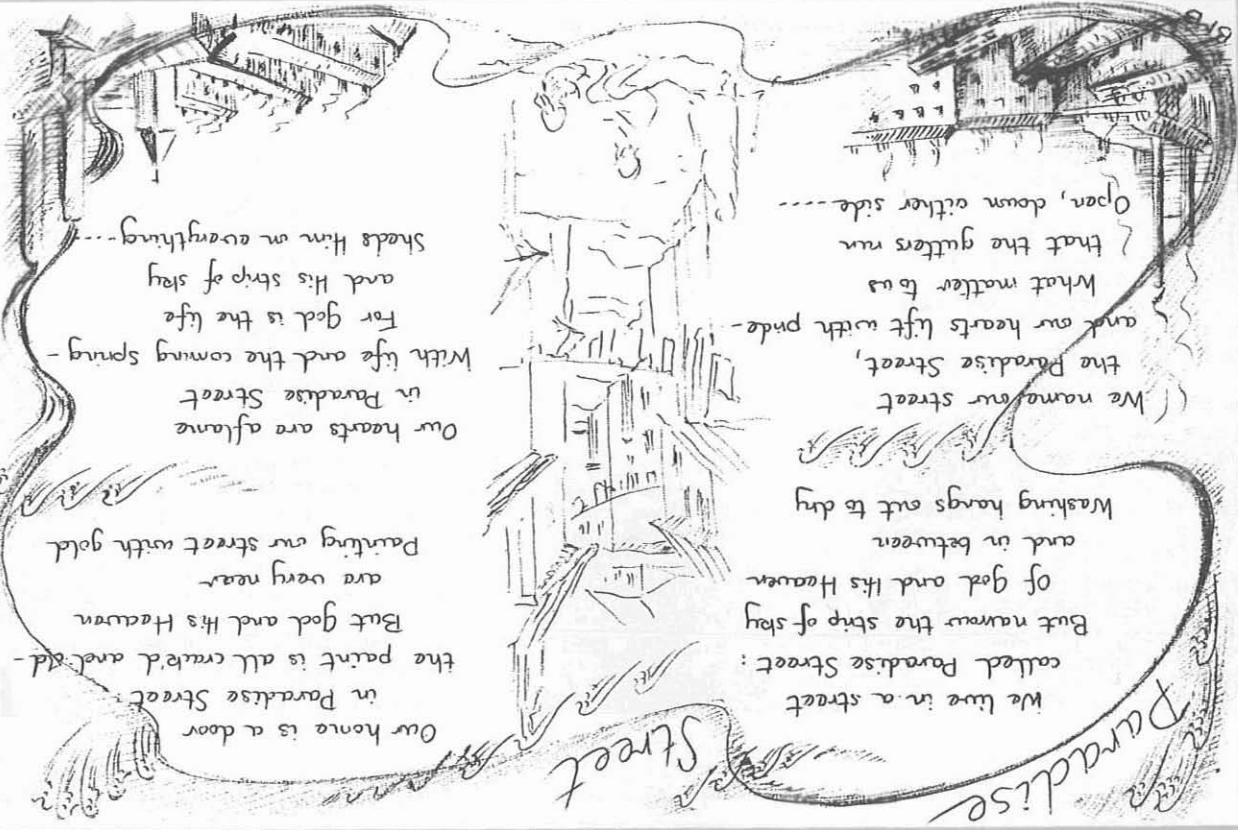 Paradise Street
We live in a street
called Paradise Street :
But narrow the strip of sky
Of God and His Heaven
and in between
Washing hangs out to dry
We name our street
the Paradise Street,
and our hearts lift with pride -
What matter to us
that the gutters run
Open, down either side -----
Our home is a door
in Paradise Street
the paint is all crack'd and old -
But God and His Heaven
are very near
Painting our street with gold
Our hearts are aflame
in Paradise Street
With life and the coming Spring -
For God is the life
and His strip of sky
Sheds Him on everything ----